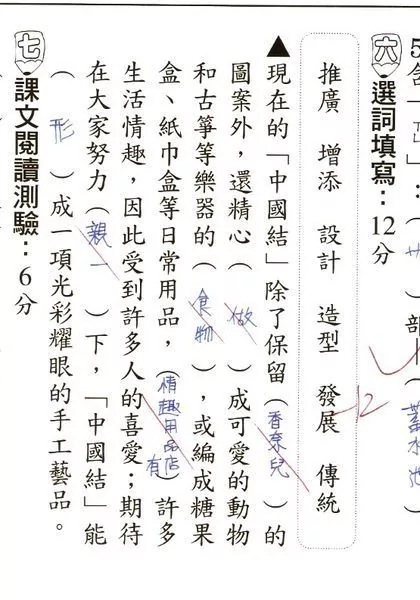 5含「卩」:(廿)部(蓄水池)
六 選詞填寫:12分
推廣 增添 設計 造型 發展 傳統
-12
▲現在的「中國結」除了保留(香奈兒)的
圖案外,還精心(做)成可愛的動物
和古箏等樂器的(食物),或編成糖果
盒、紙巾盒等日常用品,(情趣用品店有)許多
生活情趣,因此受到許多人的喜愛;期待
在大家努力(親一)下,「中國結」能
(形)成一項光彩耀眼的手工藝品。
七 課文閱讀測驗:6分